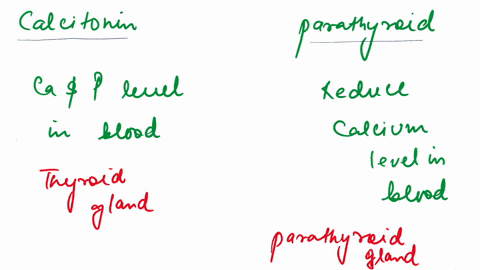 Calcitonin
Ca & P level
in blood
Thyroid
gland
parathyroid
Reduce
Calcium
level in
blood
parathyroid
gland